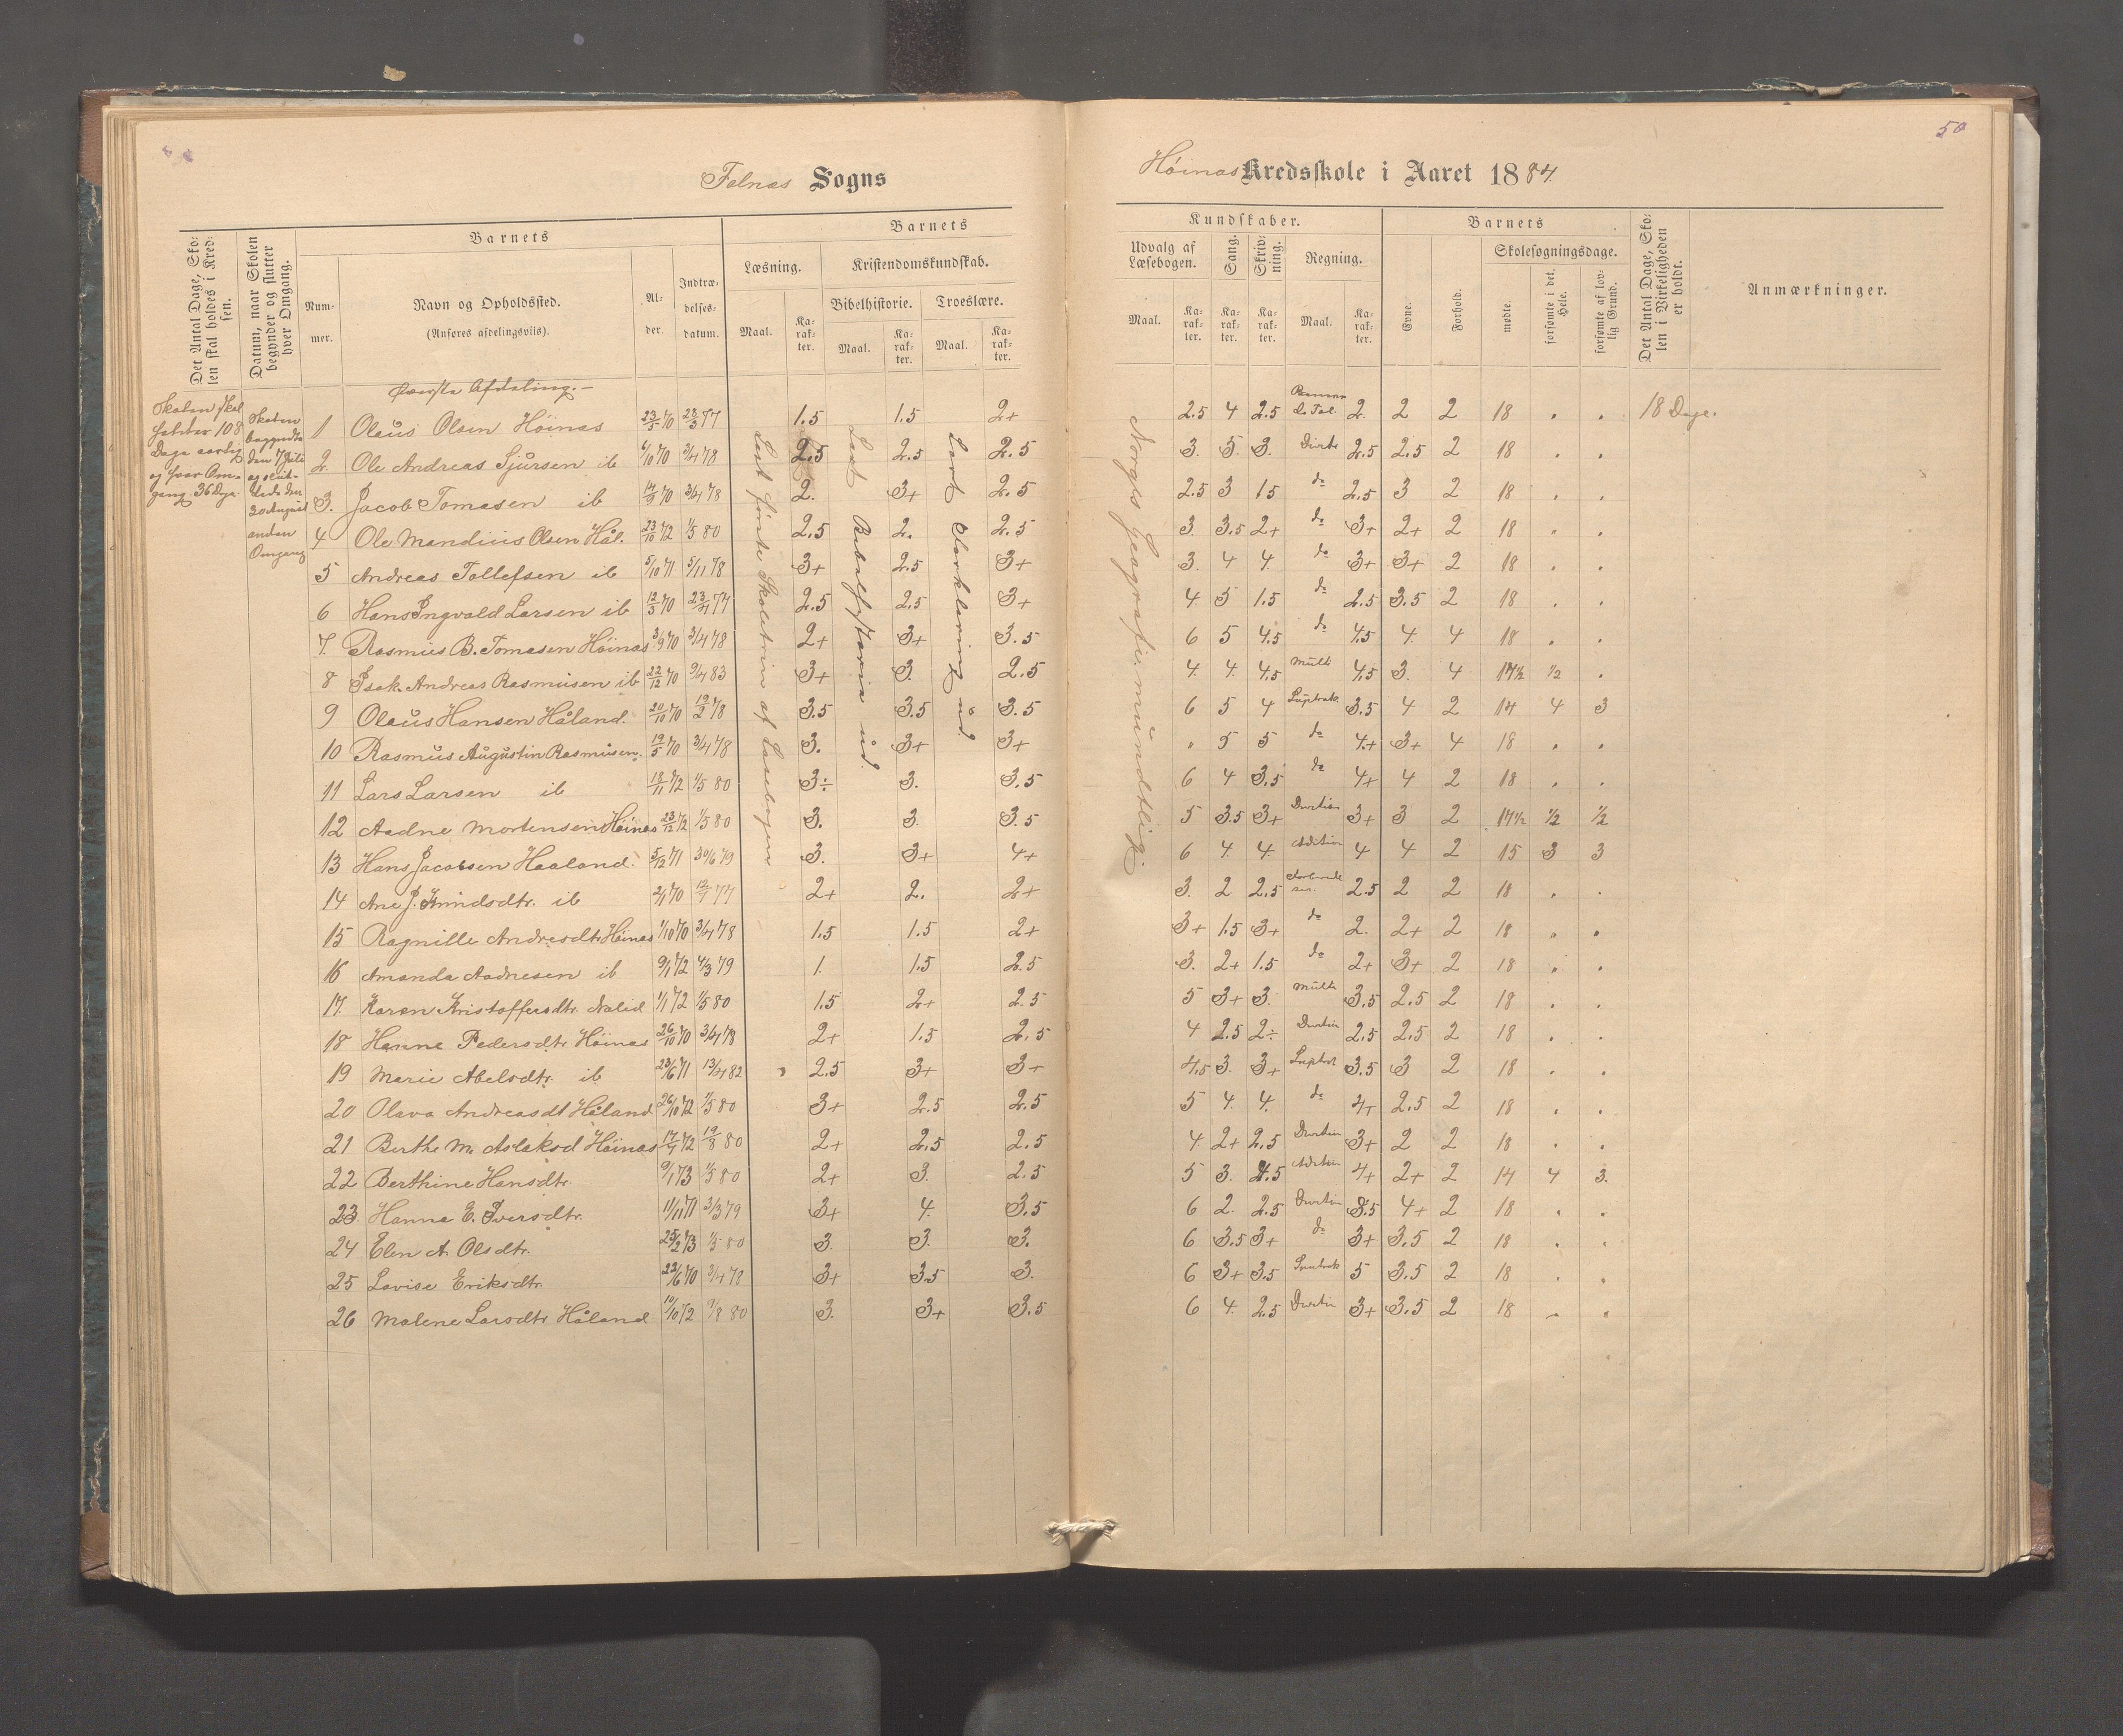 50
Falnæs Sogns
Høinæs Kredsskole i Aaret 1884.
Det Antal Dage, Sko-
len skal holdes i Kred-
sen.
Datum, naar Skolen
begynder og slutter
hver Omgang.
Barnets
Num-
mer.
Navn og Opholdssted.
(Anføres afdelingsvis).
Al-
der.
Indtræ-
delses-
datum.
Barnets
Læsning.
Kristendomskundskab.
Bibelhistorie. Troeslære.
Maal. Ka-
rak-
ter. Maal. Ka-
rak-
ter. Maal. Ka-
rak-
ter.
Kundskaber.
Udvalg af
Læsebogen. Sang. Skriv-
ning. Regning.
Maal. Ka-
rak-
ter. Ka-
rak-
ter. Ka-
rak-
ter. Maal. Ka-
rak-
ter.
Barnets
Evne. Forhold.
Skolesøgningsdage.
mødte. forsømte i det
Hele. forsømte af lov-
lig Grund.
Det Antal Dage, Sko-
len i Virkeligheden
er holdt.
Anmærkninger.
Skolen skal
holdes 108
Dage aarlig
og hver Om-
gang 36 Dge.
Skolen
begyndte
den 7 Juli
og slut-
tede den
30 August
anden
Omgang
Første Afdeling.
Læst første Skoletrin af Læsebogen
Læst Bibelhystorien ud.
Lært Forklaring ud
Norges Geografi. mundtlig.
1 Olaus Olsen Høinæs 23/5 70 28/3 77 1.5 1.5 2+ 2.5 4 2.5 2. 2 2 18 . . 18 Dage.
2. Ole Andreas Sjursen ib 6/10 70 3/4 78 2.5 2.5 2.5 3. 5. 3. 2.5 2.5 2 18 . .
3. Jacob Tomasen ib 17/9 70 3/4 78 2. 3+ 2.5 2.5 3 1.5 do 2.5 3 2 18 . .
4 Ole Mandius Olsen Hål. 23/10 72 1/5 80 2.5 2. 2.5 3. 3.5 2+ do 3+ 2+ 2 18 . .
5 Andreas Tollefsen ib 5/10 71 5/11 78 3+ 2.5 3+ 3. 4 4. do 3+ 3+ 2 18 . .
6 Hans Ingvald Larsen ib 12/3 70 23/4 77 2.5 2.5 3+ 4. 5 1.5 do 2.5 3.5 2 18 . .
7. Rasmus B. Tomasen Høinæs 3/9 70 3/4 78 2+ 3+ 3.5 6 5 4.5 do 4.5 4. 4 18 . .
8 Isak Andreas Rasmusen ib 22/12 70 9/4 83 3+ 3. 2.5 4. 4. 4.5 Multi 4.5 3. 4 17½ ½ .
9 Olaus Hansen Håland. 20/10 70 19/2 78 3.5 3.5 3.5 6 5 4 3.5 4 2 14 4 3
10 Rasmus Augustin Rasmusen. 19/5 70 3/4 78 3. 3+ 3+ . 5 5 do 4+ 3+ 4 18 . .
11 Lars Larsen ib 18/11 72 1/5 80 3÷ 3. 3.5 6 4 3.5 do 4+ 4 2 18 . .
12 Aadne Mortensen Høinæs 23/12 72 1/5 80 3. 3. 3.5 5 3.5 3+ 3+ 3 2 17½ ½ ½
13 Hans Jacobsen Haaland. 5/12 71 30/6 79 3. 3+ 4+ 6 4. 4. Adition 4 4 2 15 3 3
14 Ane J. Amundsdtr. ib 2/1 70 12/7 77 2+ 2. 2+ 3. 2 2.5 2.5 2 2 18 . .
15 Ragnille Andreasdtr Høinæs 1/10 70 3/4 78 1.5 1.5 2+ 3+ 1.5 3+ do 2. 2+ 2 18 . .
16 Amanda Aadnesen ib 9/1 72 4/3 79 1. 1.5 2.5 3. 2+ 1.5 do 2+ 3+ 2 18 . .
17. Karen Kristoffersdtr. 1/1 72 1/5 80 1.5 2+ 2.5 5 3+ 3. Multi 3.5 2.5 2 18 . .
18 Hanne Pedersdtr Høinæs 26/10 70 3/4 78 2+ 1.5 2.5 4 2.5 2÷ 2.5 2.5 2 18 . .
19 Marie Abelsdtr. ib 23/6 71 13/4 82 2.5 3+ 3+ 4.5 3. 3+ 3.5 3 2 18 . .
20 Olava Andreasdt Håland 26/10 72 1/5 80 3+ 2.5 2.5 5 4. 4. do 4+ 2.5 2 18 . .
21 Berthe M. Aslaksd Høinæs 17/7 72 19/8 80 2+ 2.5 2.5 4. 2+ 2.5 3+ 2 2 18 . .
22 Berthine Hansdtr. 9/1 73 1/5 80 2+ 3. 2.5 5 3. 2.5 Adition 4+ 2+ 2 14 4 3.
23. Hanna E. Iversdtr. 11/11 71 3/3 79 3+ 4. 3.5 6 2. 2.5 3.5 4+ 2 18 . .
24 Elen A. Olsdtr. 25/2 73 1/5 80 3. 3. 3. 6 3.5 3+ do 3+ 3.5 2 18 . .
25 Lovise Eriksdtr. 22/6 70 3/4 78 3+ 3.5 3. 6 3+ 3.5 5 3.5 2 18 . .
26 Malene Larsdtr Håland 10/10 72 9/8 80 3. 3+ 3.5 6 4. 2.5 3+ 3.5 2 18 . .